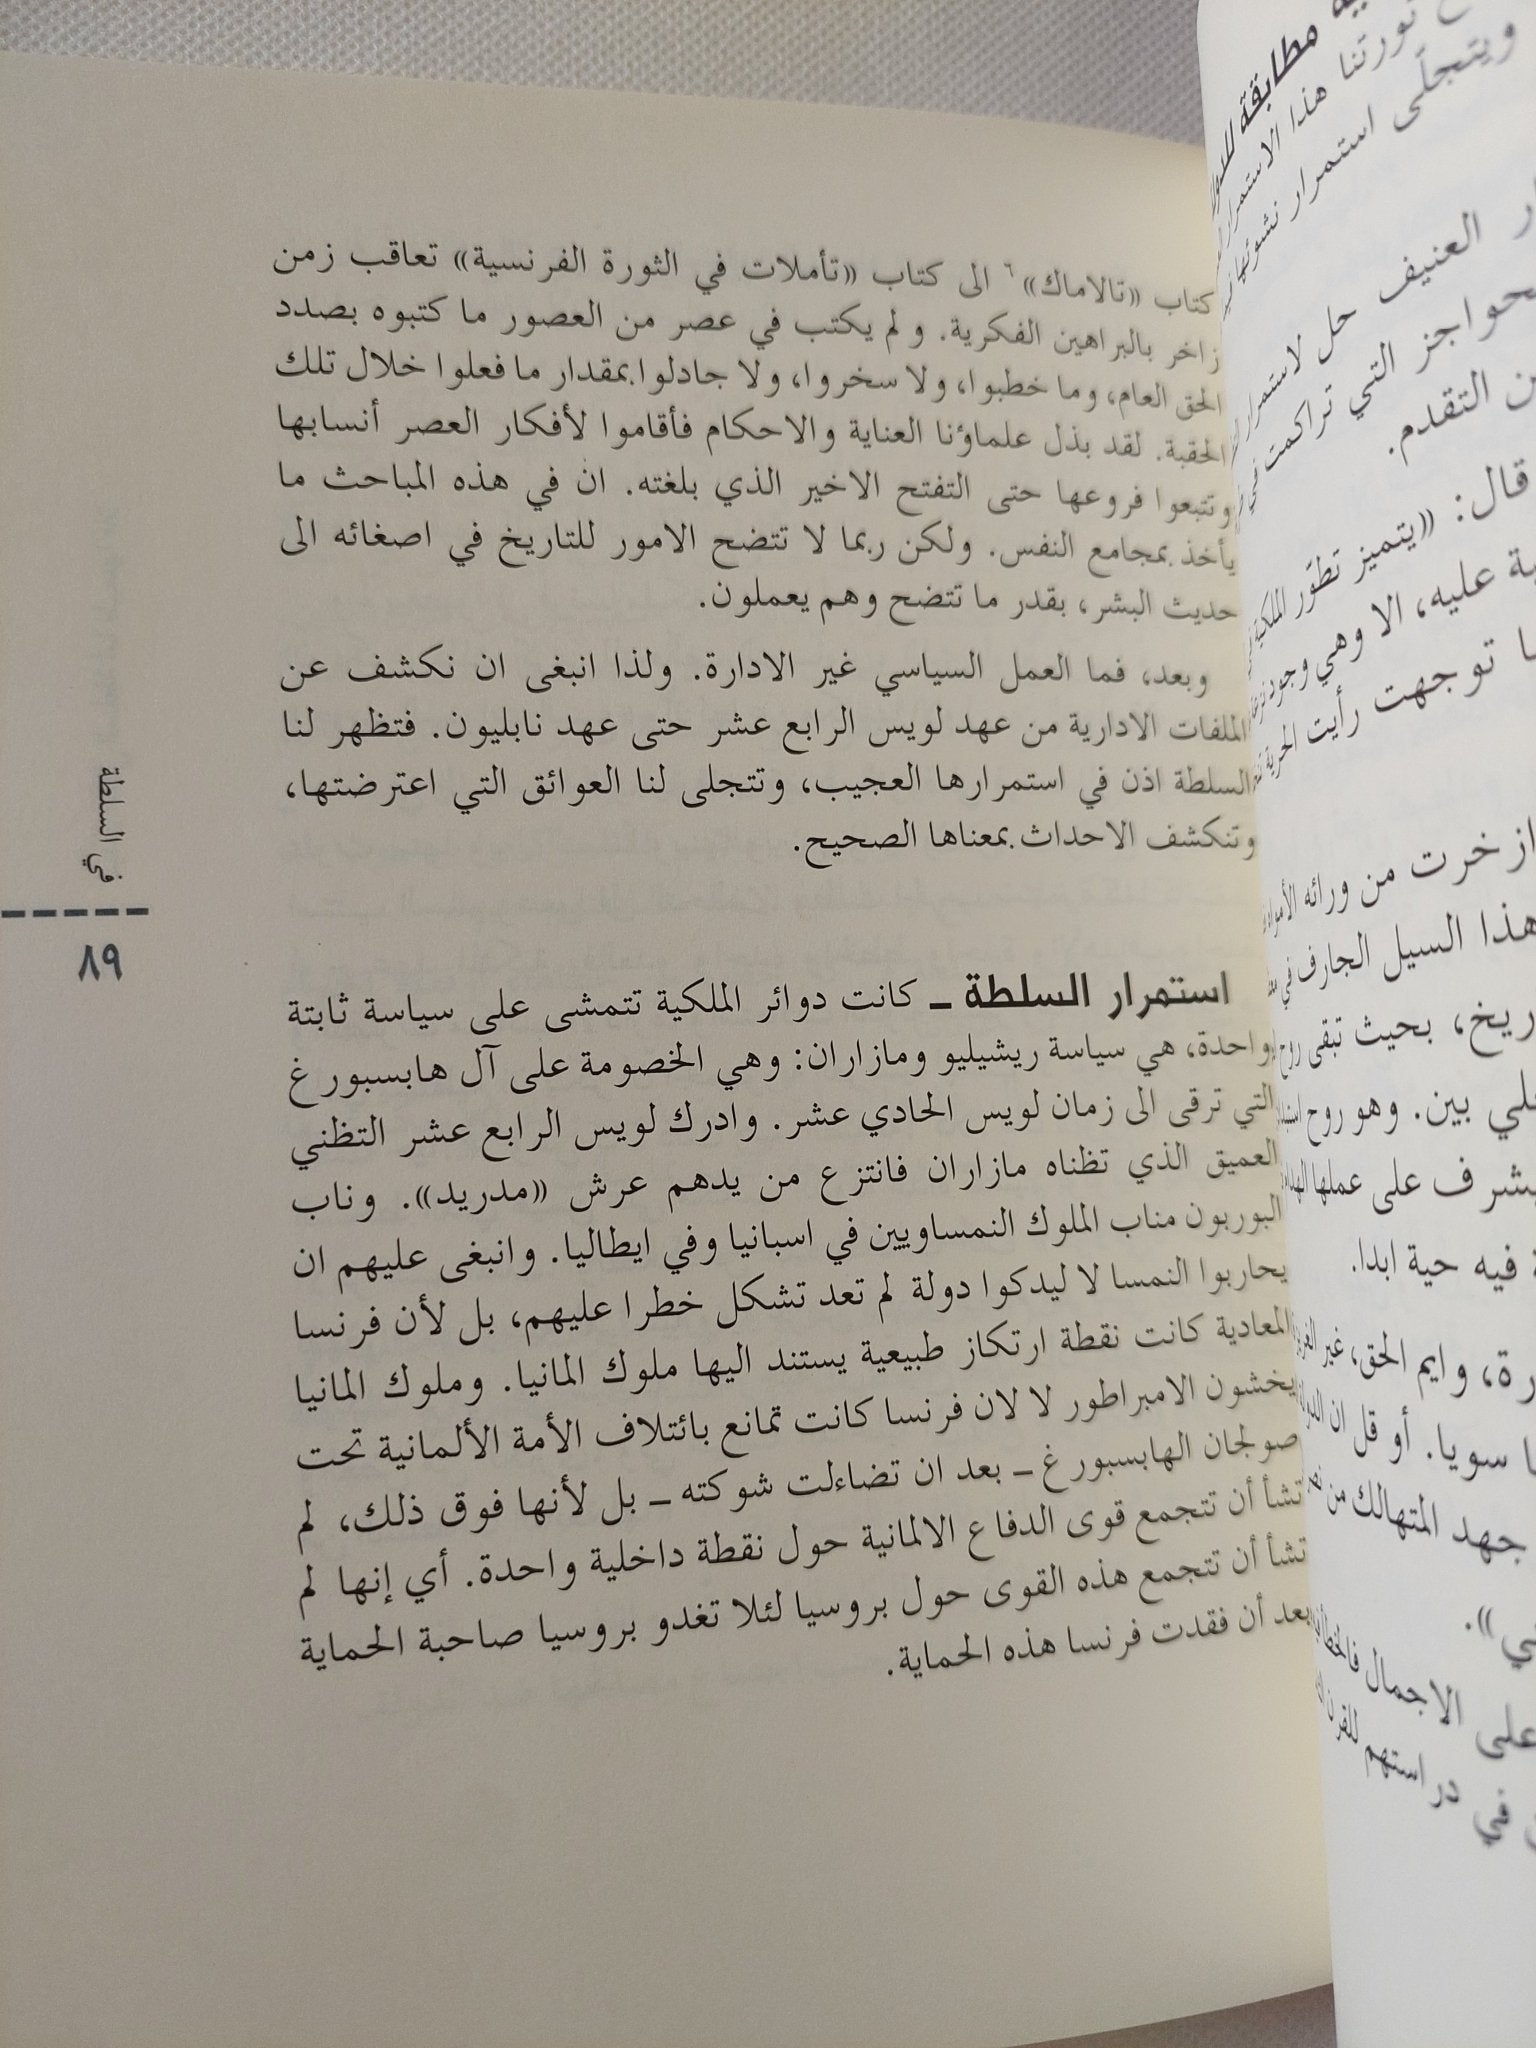 كتاب «تالاماك»٦ الى كتاب «تأملات في الثورة الفرنسية» تعاقب زمن
زاخر بالبراهين الفكرية. ولم يكتب في عصر من العصور ما كتبوه بصدد
الحق العام، وما خطبوا، ولا سخروا، ولا جادلوا بمقدار ما فعلوا خلال تلك
الحقبة. لقد بذل علماؤنا العناية والاحكام فأقاموا لأفكار العصر أنسابها
وتتبعوا فروعها حتى التفتح الاخير الذي بلغته. ان في هذه المباحث ما
يأخذ بمجامع النفس. ولكن ربما لا تتضح الامور للتاريخ في اصغائه الى
حديث البشر، بقدر ما تتضح وهم يعملون.
وبعد، فما العمل السياسي غير الادارة. ولذا انبغى ان نكشف عن
الملفات الادارية من عهد لويس الرابع عشر حتى عهد نابليون. فتظهر لنا
السلطة اذن في استمرارها العجيب، وتتجلى لنا العوائق التي اعترضتها،
وتنكشف الاحداث بمعناها الصحيح.
استمرار السلطة ــ كانت دوائر الملكية تتمشى على سياسة ثابتة
واحدة، هي سياسة ريشيليو ومازاران: وهي الخصومة على آل هابسبورغ
التي ترقى الى زمان لويس الحادي عشر. وادرك لويس الرابع عشر التظني
العميق الذي تظناه مازاران فانتزع من يدهم عرش «مدريد». وناب
البوربون مناب الملوك النمساويين في اسبانيا وفي ايطاليا. وانبغى عليهم ان
يحاربوا النمسا لا ليدكوا دولة لم تعد تشكل خطرا عليهم، بل لأن فرنسا
المعادية كانت نقطة ارتكاز طبيعية يستند اليها ملوك المانيا. وملوك المانيا
يخشون الامبراطور لا لان فرنسا كانت تمانع بائتلاف الأمة الألمانية تحت
صولجان الهابسبورغ ــ بعد ان تضاءلت شوكته ــ بل لأنها فوق ذلك، لم
تشأ أن تتجمع قوى الدفاع الالمانية حول نقطة داخلية واحدة. أي إنها لم
تشأ أن تتجمع هذه القوى حول بروسيا لئلا تغدو بروسيا صاحبة الحماية
بعد أن فقدت فرنسا هذه الحماية.
في السلطة
٨٩
مطابقة
ثورتنا هذا
ويتجلّى استمرار نشوئها
العنيف حل لاستمرار
التي تراكمت في
التقدم.
قال: «يتميز تطوّر الملكية
عليه، الا وهي وجود
توجهت رأيت الحرية
خرت من ورائه
هذا السيل الجارف في
بحيث تبقى روح
بين. وهو روح
على عملها
فيه حية ابدا.
وايم الحق، غير
سويا. أو قل ان
جهد المتهالك من
على الاجمال
في دراستهم